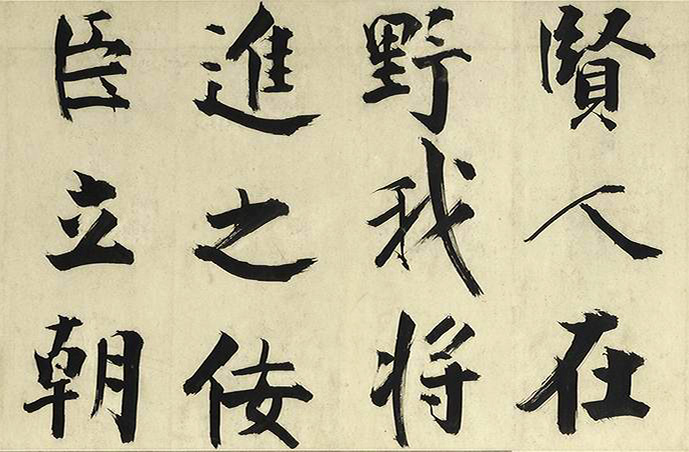 賢人在
野我將
進之佞
臣立朝